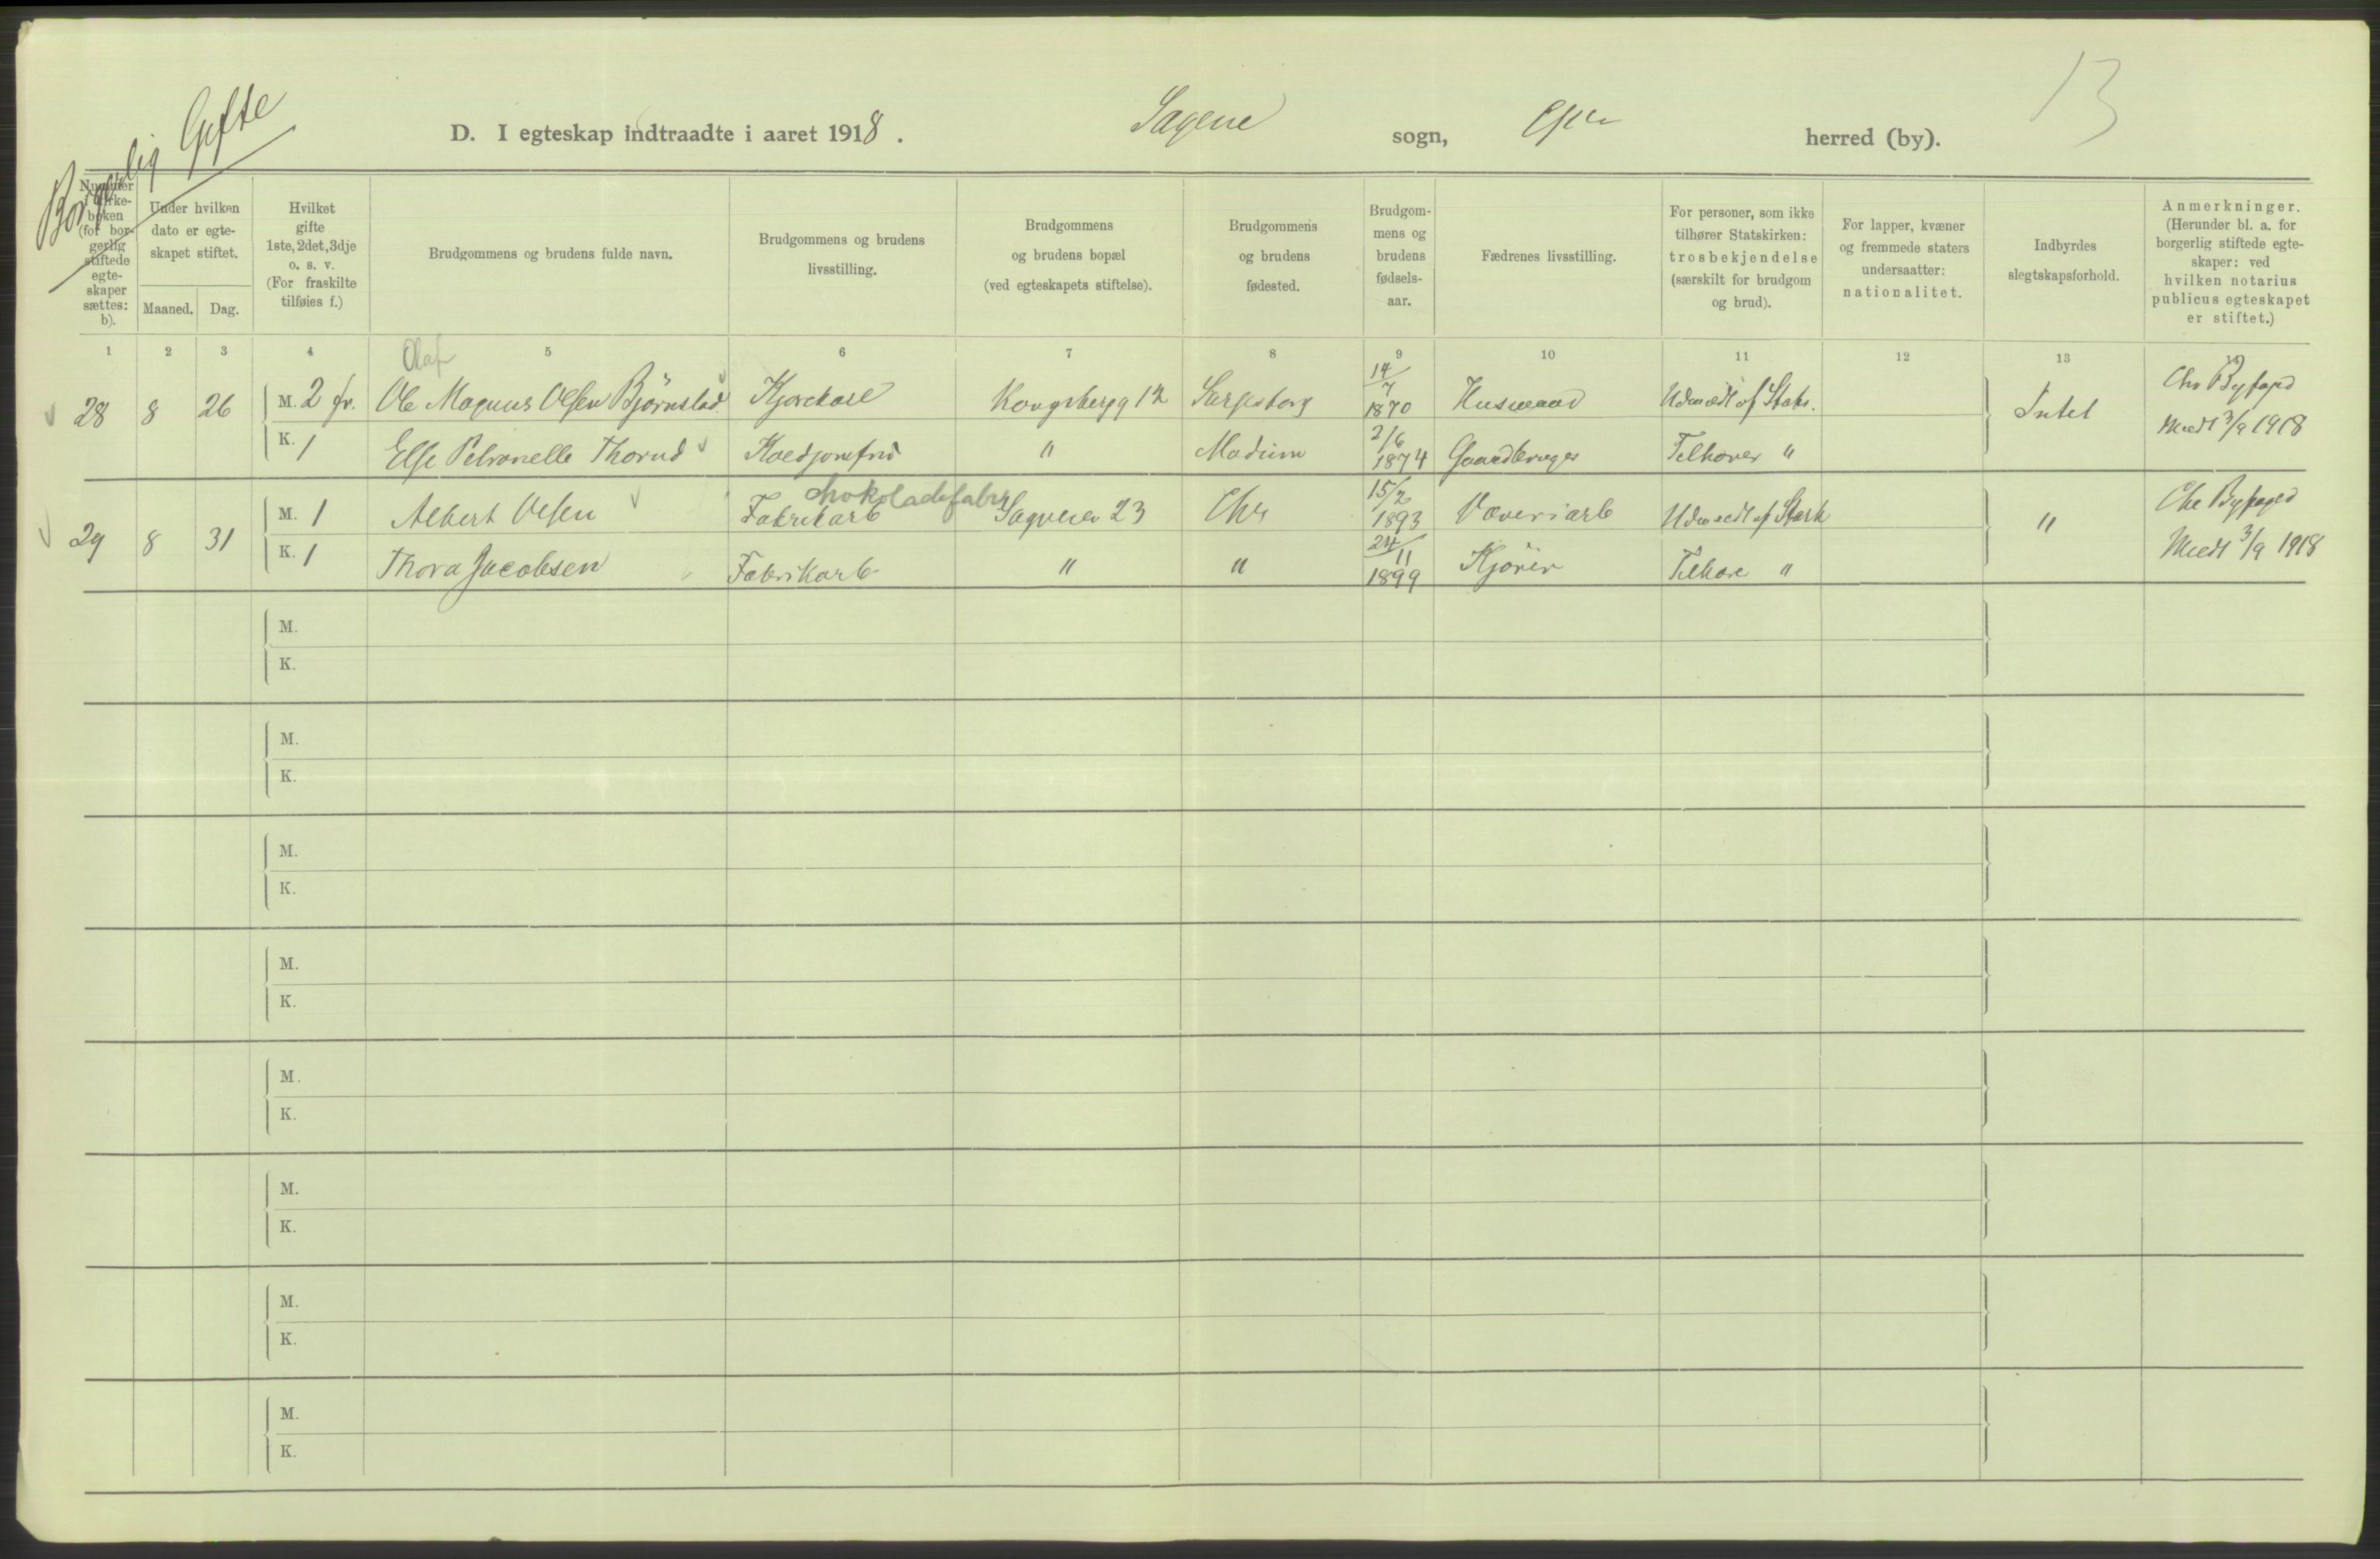 13
Borgerlig Gifte
D. I egteskap indtraadte i aaret 1918. Sagene sogn, herred (by).
Nummer
i kirke-
boken
(for bor-
gerlig
stiftede
egte-
skaper
sættes:
b).
Under hvilken
dato er egte-
skapet stiftet.
Maaned. Dag.
Hvilket
gifte
1ste, 2det, 3dje
o. s. v.
(For fraskilte
tilføies f.)
Brudgommens og brudens fulde navn.
Brudgommens og brudens
livsstilling.
Brudgommens
og brudens bopæl
(ved egteskapets stiftelse).
Brudgommens
og brudens
fødested.
Brudgom-
mens og
brudens
fødsels-
aar.
Fædrenes livsstilling.
For personer, som ikke
tilhører Statskirken:
trosbekjendelse
(særskilt for brudgom
og brud).
For lapper, kvæner
og fremmede staters
undersaatter:
nationalitet.
Indbyrdes
slegtskapsforhold.
Anmerkninger.
(Herunder bl. a. for
borgerlig stiftede egte-
skaper: ved
hvilken notarius
publicus egteskapet
er stiftet.)
1 2 3 4 5 6 7 8 9 10 11 12 13 14
Olaf
28 8 26 M. 2 fr. Ole Magnus Olsen Bjørnstad Kjørekarl Kongsbergg 12 Sarpsborg 14/7 1870 Husmand Udmedt af Stats. Intet Chr Byfogd
Medt 3/9 1918
K. 1 Else Petronelle Thorud " Modum 2/6 1874 Gaardbruger Tilhører "
Chokoladefabr
29 8 31 M. 1 Albert Olsen Fabrikarb Sagveien 23 Chr 15/2 1893 Væveriarb Udmeldt af Statk " Chr Byfoged
Medt 3/9 1918
K. 1 Thora Jacobsen Fabrikarb " " 24/11 1899 Kjører Tilhøre "
M.
K.
M.
K.
M.
K.
M.
K.
M.
K.
M.
K.
M.
K.
M.
K.